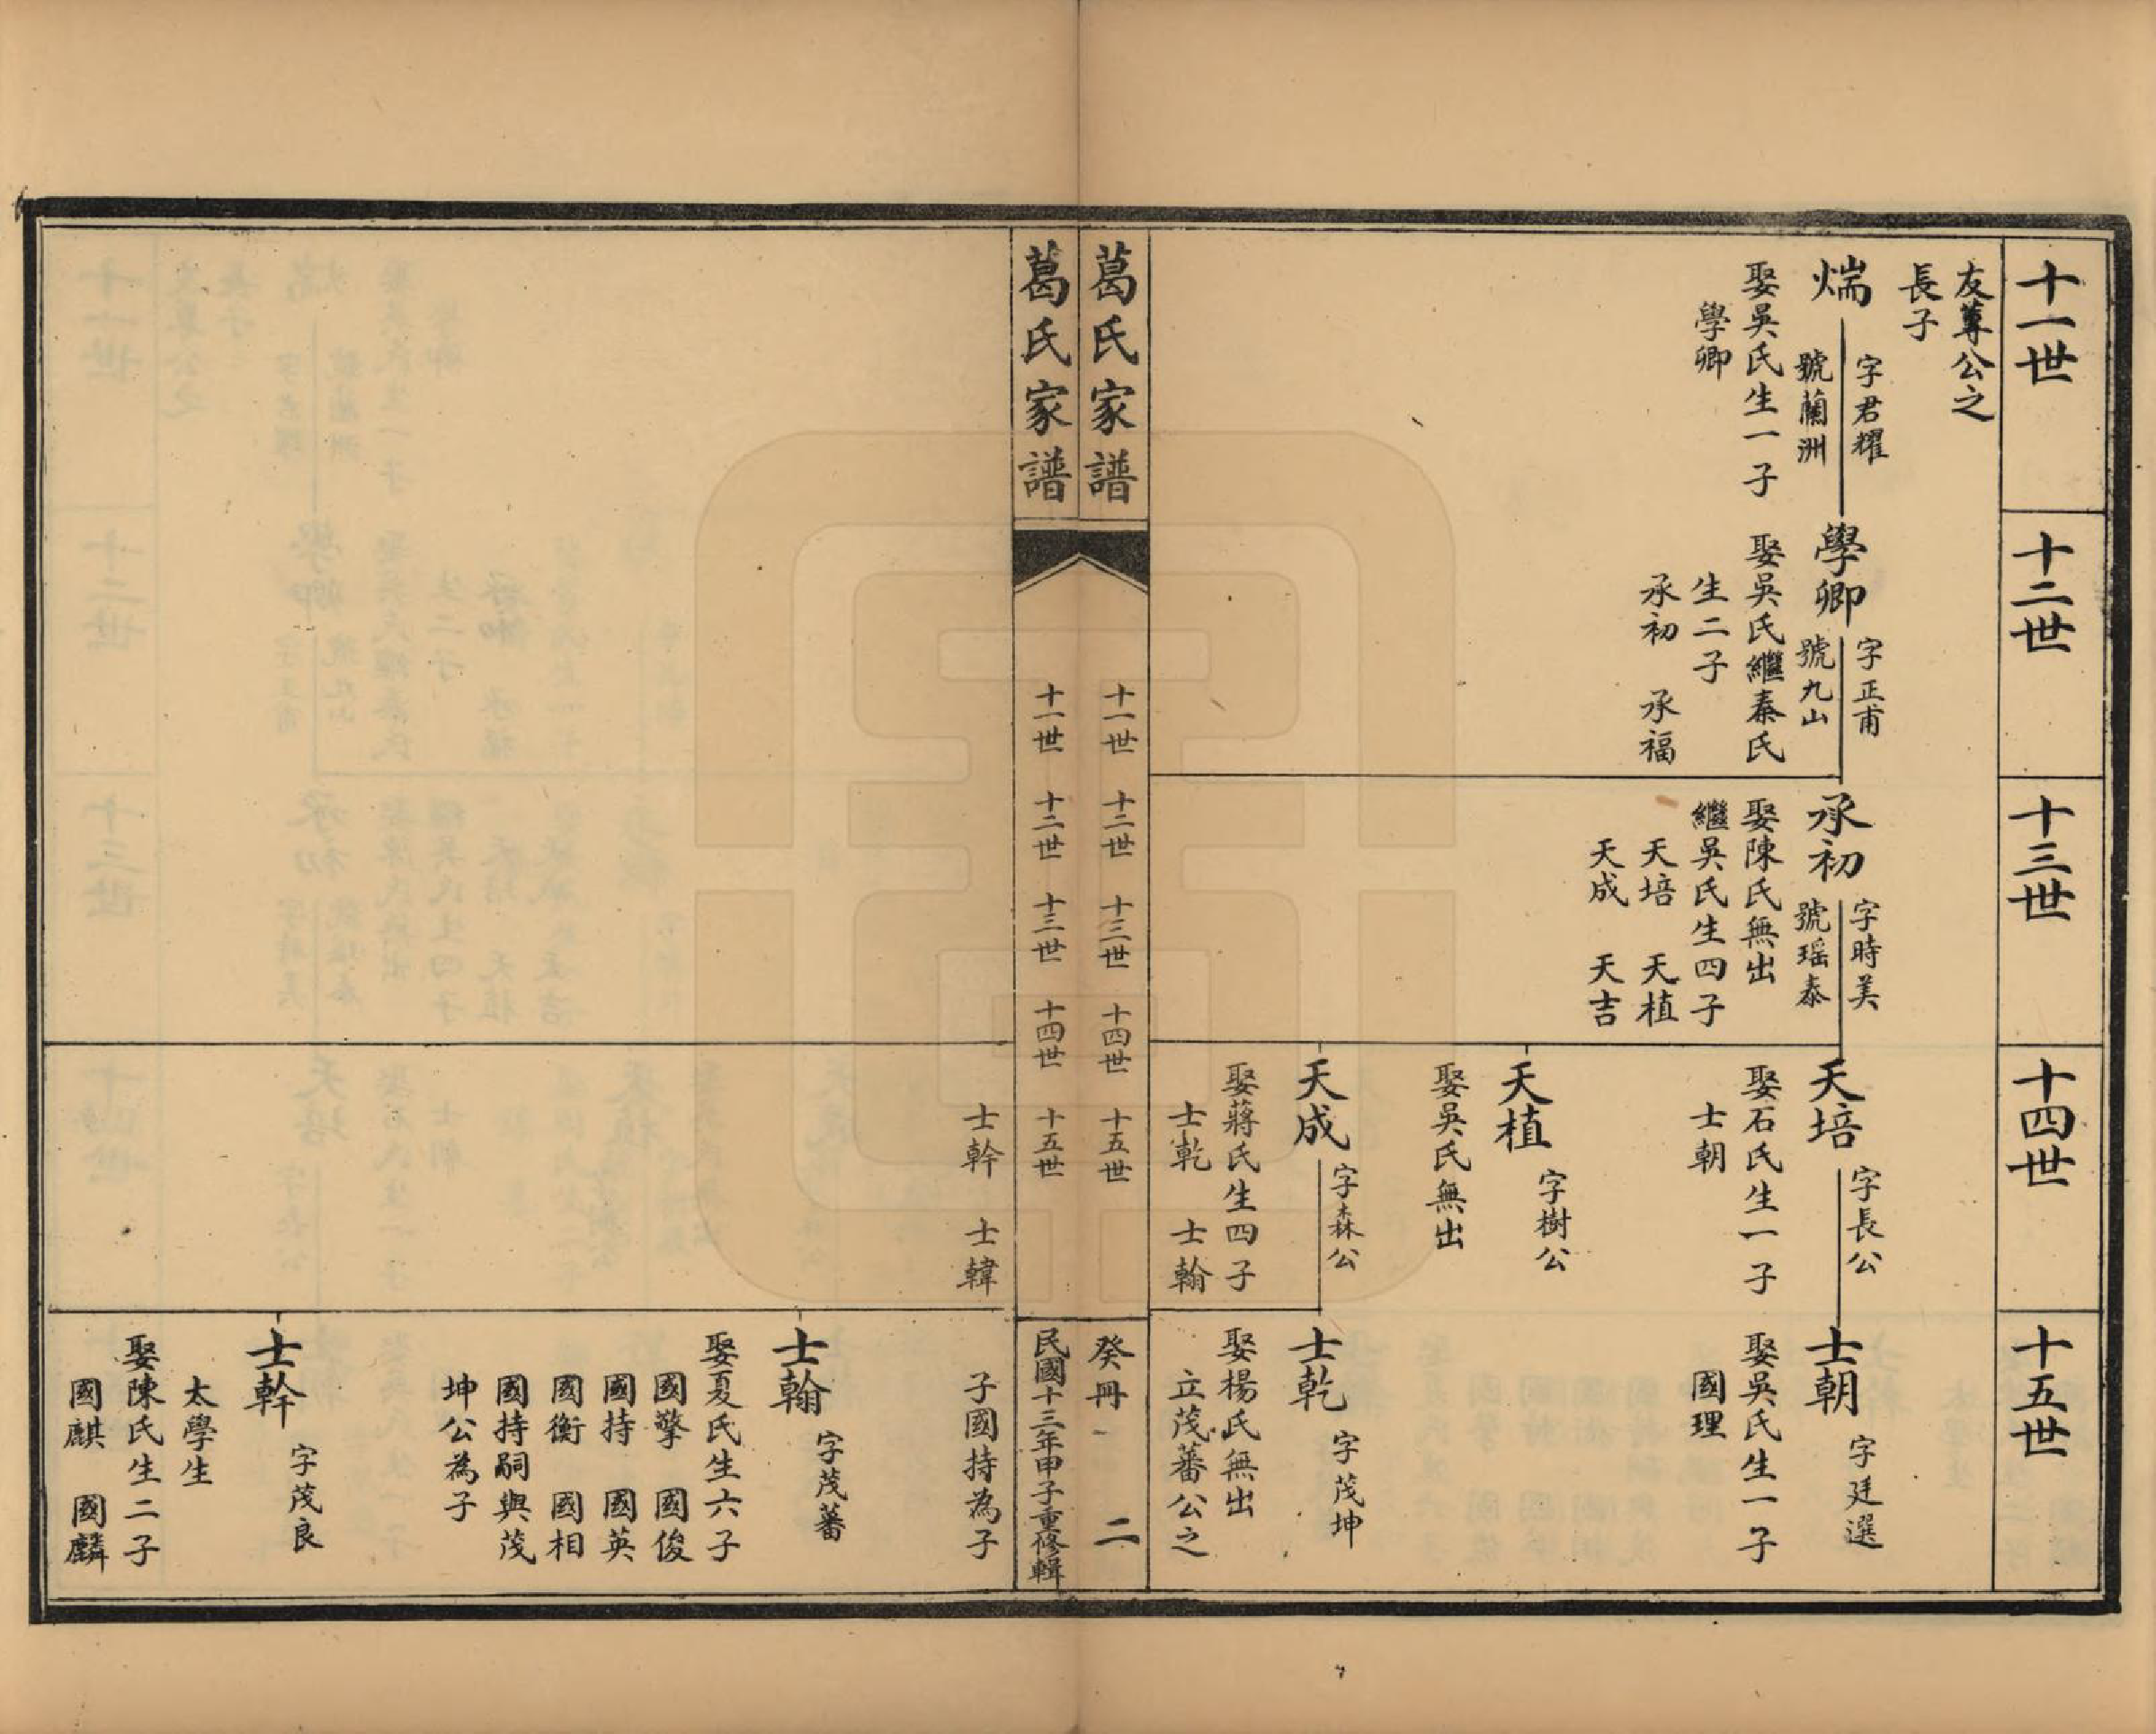 十一世
十二世
十三世
十四世
十五世
友尊公之
長子
煓
字君耀
號蘭洲
娶吳氏生一子
學卿
學卿
字正甫
號九山
娶吳氏繼秦氏
生二子
承初 承福
承初
字時美
號瑶泰
娶陳氏無出
繼吳氏生四子
天培 天植
天成 天吉
天培
字長公
娶石氏生一子
士朝
天植
字樹公
娶吳氏無出
天成
字森公
娶蔣氏生四子
士乾 士翰
士朝
字廷選
娶吳氏生一子
國理
士乾
字茂坤
娶楊氏無出
立茂蕃公之
葛氏家譜
十一世 十二世 十三世 十四世 十五世
癸冊 二
葛氏家譜
十一世 十二世 十三世 十四世 十五世
民國十三年甲子重修輯
士幹 士韓
子國持為子
士翰
字茂蕃
娶夏氏生六子
國擎 國俊
國持 國英
國衡 國相
國持嗣與茂
坤公為子
士幹
字茂良
太學生
娶陳氏生二子
國麒 國麟